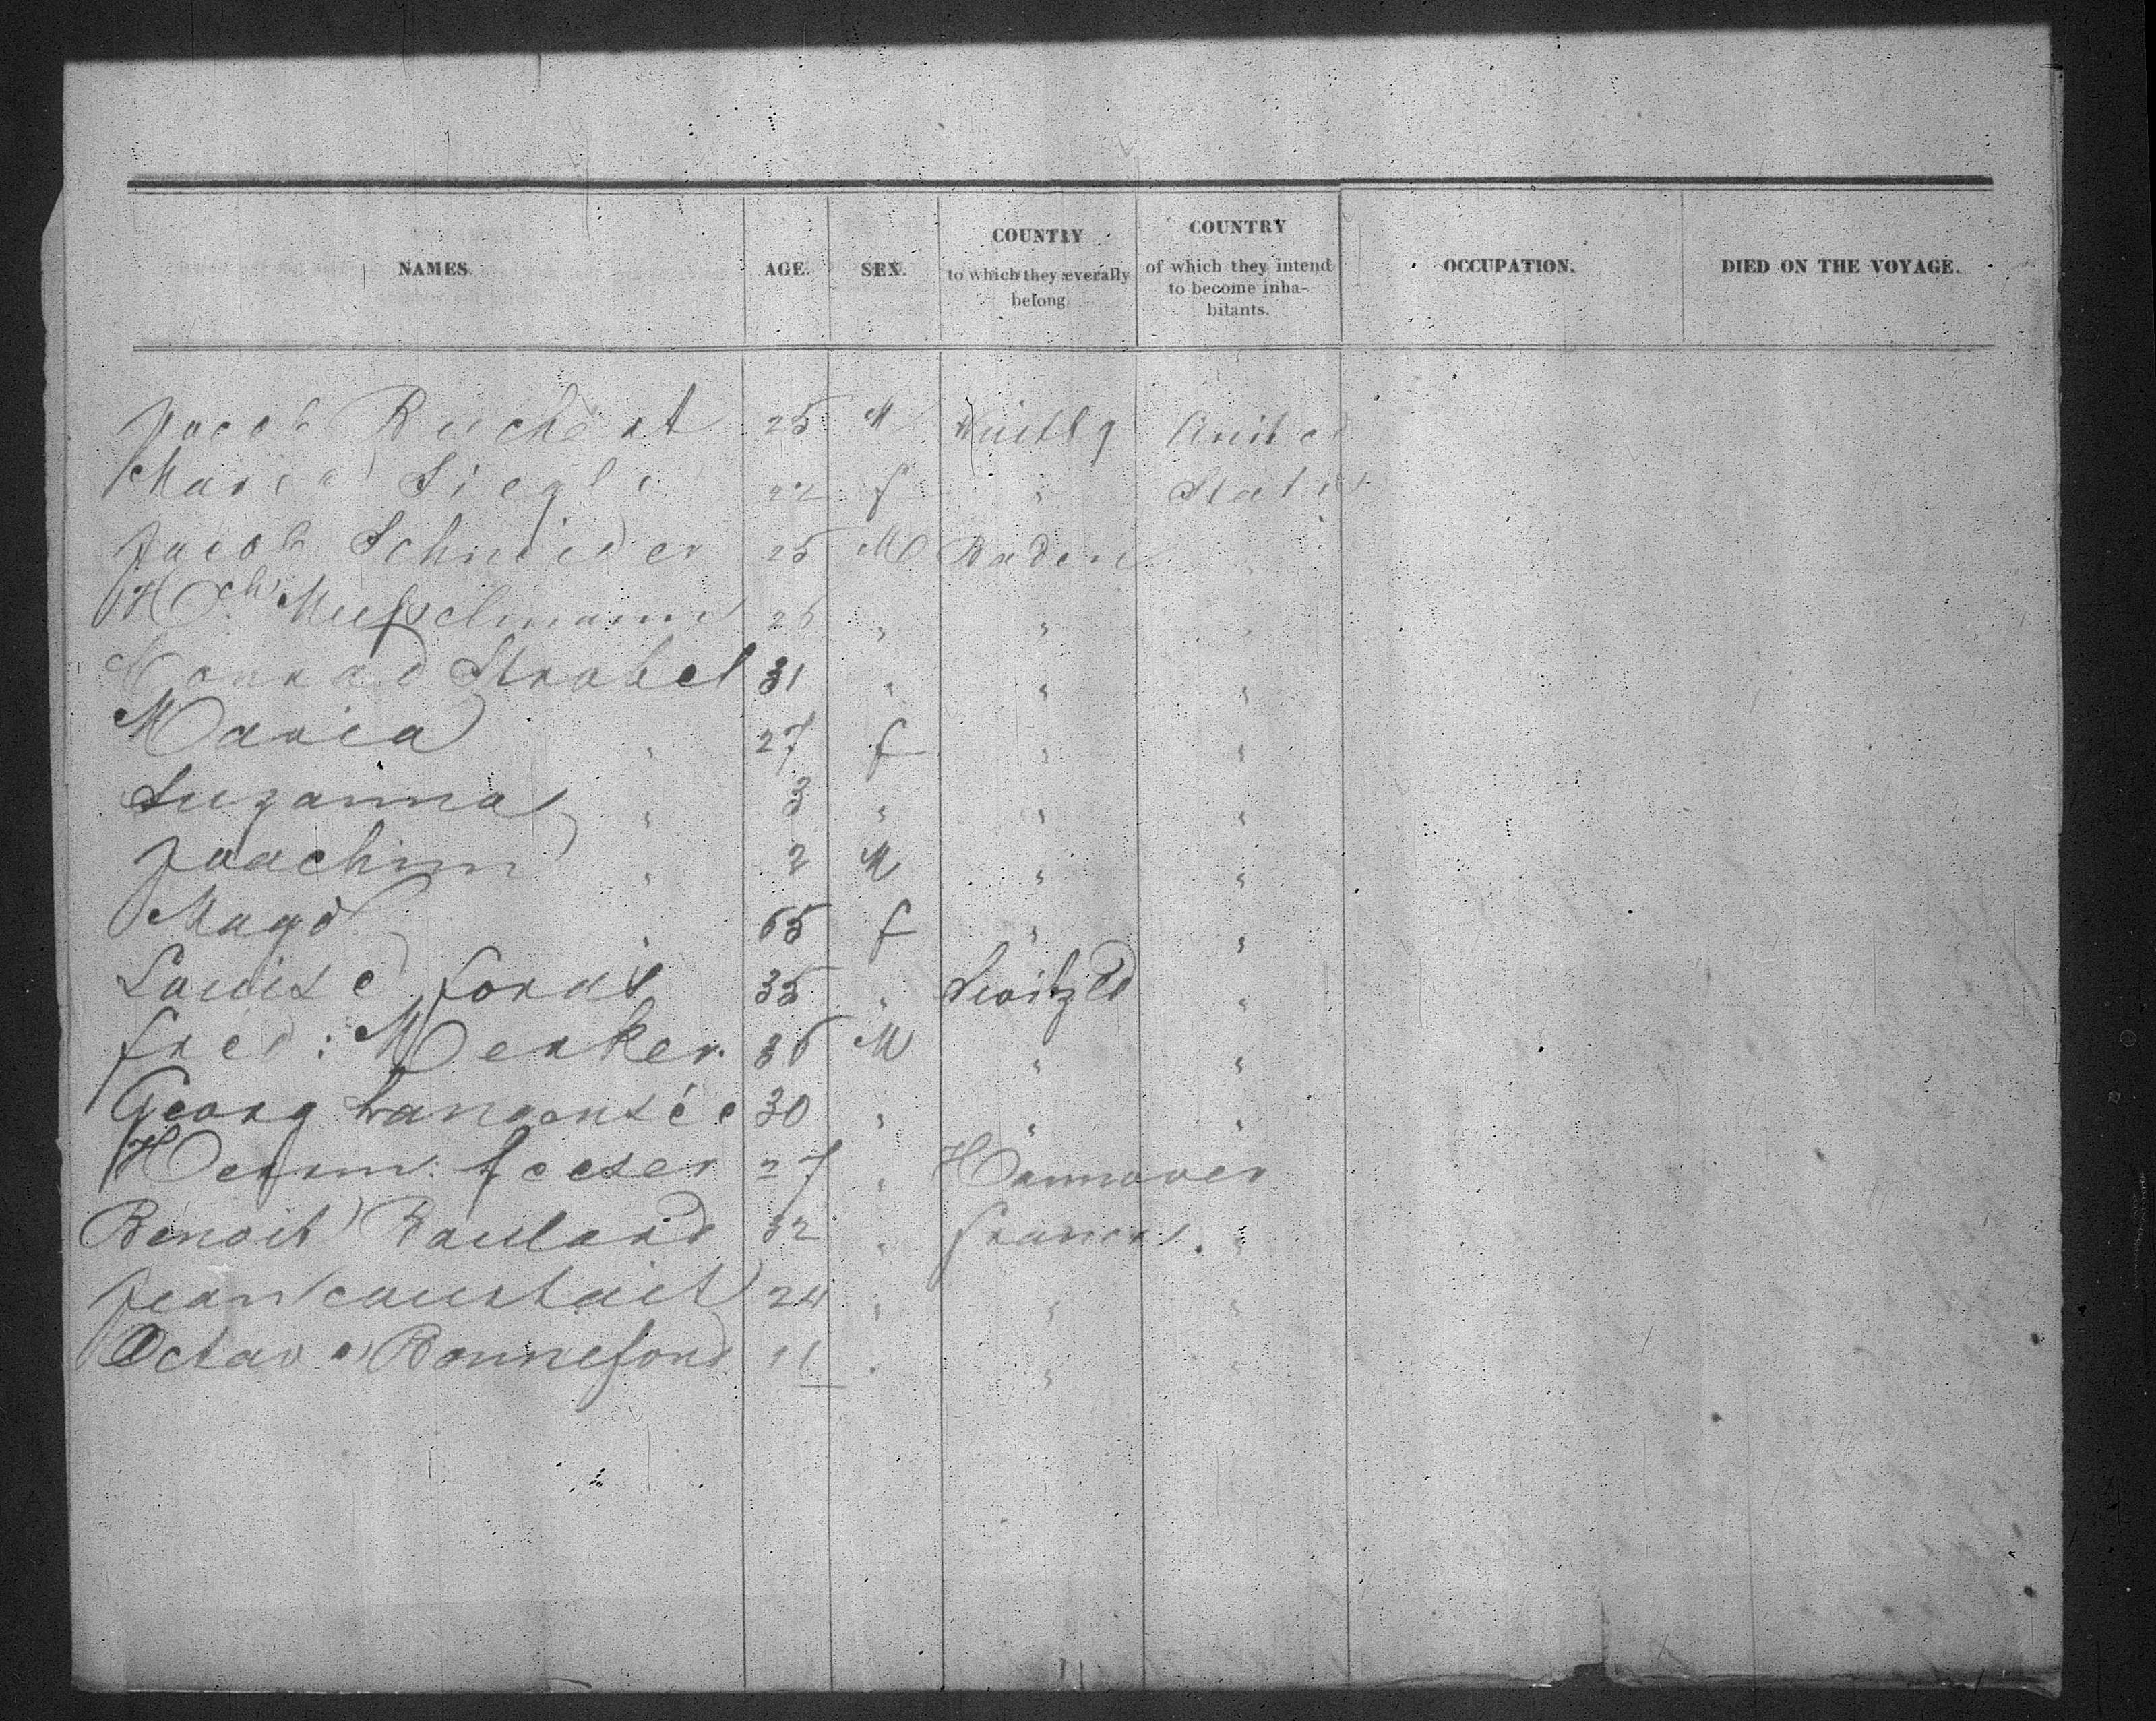 NAMES. AGE. SEX. COUNTRY to which they severally belong COUNTRY of which they intend to become inha-bitants. OCCUPATION. DIED ON THE VOYAGE.
Jacob Ruchert 25 M Würtbg United
Maria Siegle 22 f " States
Jacob Schneider 25 M Baden "
Hch. Musselmann 25 " " "
Conrad Strobel 31 " " "
Maria " 27 f " "
Suzanna " 3 " " "
Joachim " 2 M " "
Magd. " 65 f " "
Louise 35 " Switzld "
fred: Merker 36 M " "
Georg Langensée 30 " " "
Herrm: 27 " Hannover
Benoit Rauland 32 " france. "
Jean 24 " " "
Octave Bonnefond 11 " " "